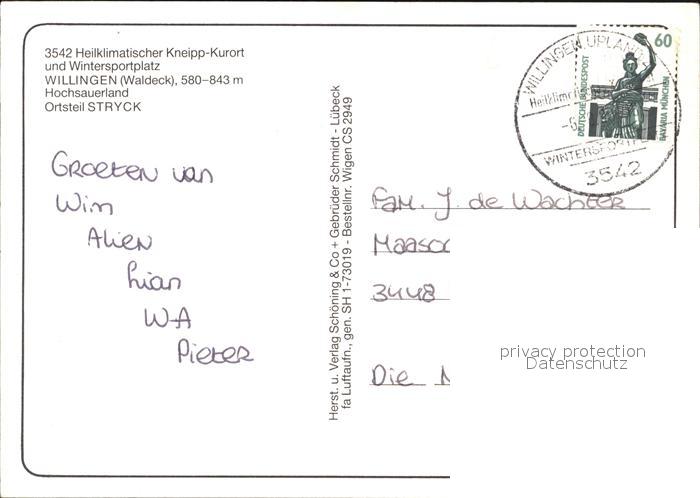 3542 Heilklimatischer Kneipp-Kurort
und Wintersportplatz
WILLINGEN (Waldeck), 580–843 m
Hochsauerland
Ortsteil STRYCK
Groeten van
Wim
Alien
Lian
WA
Pieter
Herst. u. Verlag Schöning & Co + Gebrüder Schmidt - Lübeck
fa Luftaufn., gen. SH 1-73019 - Bestellnr. Wigen CS 2949
WILLINGEN, UPLAND
60
DEUTSCHE BUNDESPOST
BAVARIA MÜNCHEN
WINTERSPORT
3542
Fam. J. de Wachter
3448
Die
privacy protection
Datenschutz